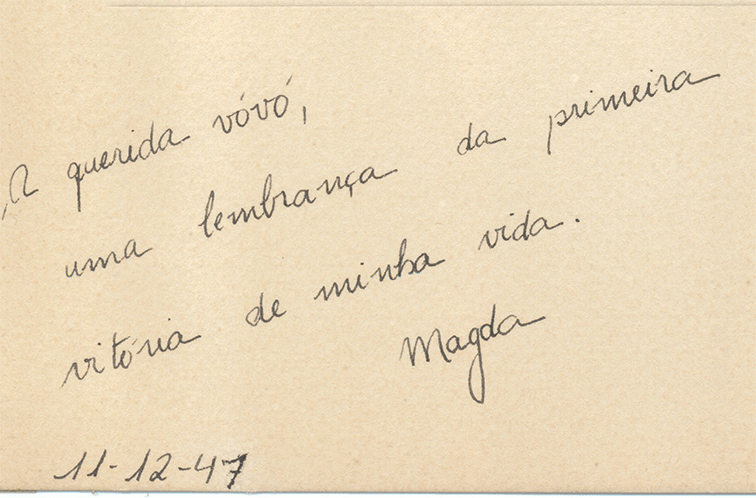 A querida vóvó,
uma lembrança da primeira
vitória de minha vida.
Magda
11-12-47